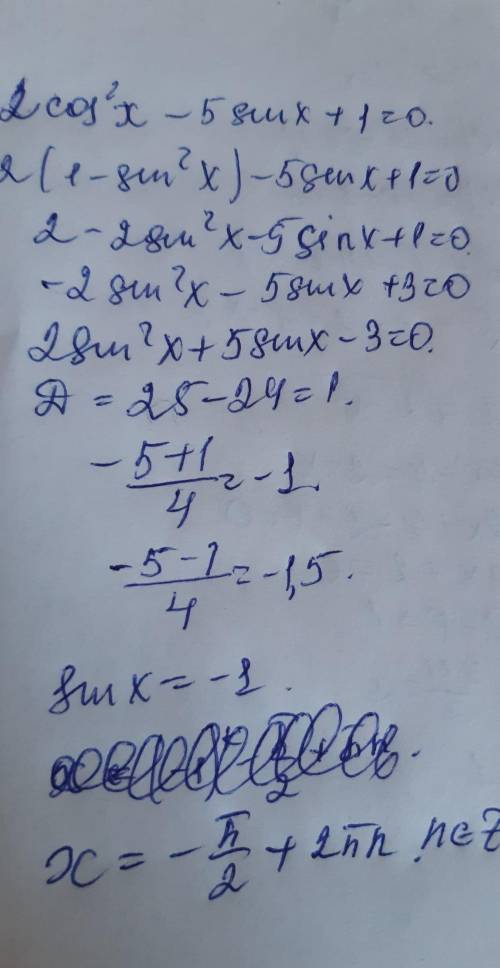 2cos²x - 5sinx + 1 = 0.
2(1 - sin²x) - 5sinx + 1 = 0
2 - 2sin²x - 5sinx + 1 = 0.
-2sin²x - 5sinx + 3 = 0
2sin²x + 5sinx - 3 = 0.
Д = 25 - 24 = 1.
(-5+1)/4 = -1.
(-5-1)/4 = -1,5.
sinx = -1.
x = -π/2 + 2πn, n∈Z